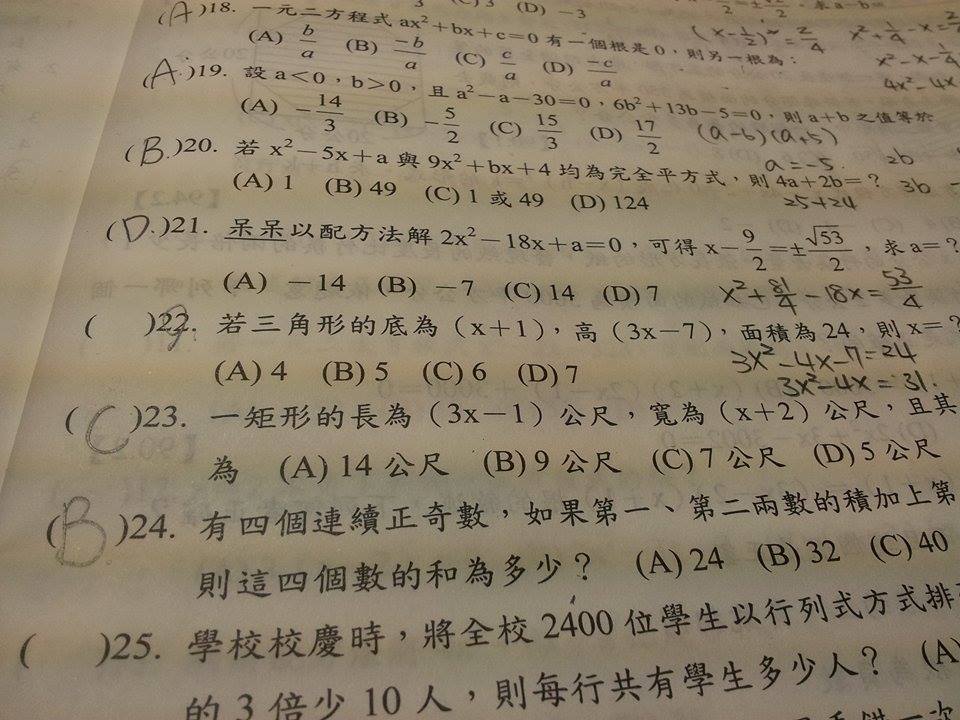 3 (D) −3
(A)18. 一元二方程式 ax²+bx+c=0 有一個根是 0,則另一根為:
(A) b/a (B) −b/a (C) c/a (D) −c/a
(x−1/2)²=2/4
(A.)19. 設 a<0,b>0,且 a²−a−30=0,6b²+13b−5=0,則 a+b 之值等於
(A) −14/3 (B) −5/2 (C) 15/3 (D) 17/2
(a−b)(a+5)
a=−5. 2b
(B.)20. 若 x²−5x+a 與 9x²+bx+4 均為完全平方式,則 4a+2b=?
(A) 1 (B) 49 (C) 1 或 49 (D) 124
25+24 3b
(D.)21. 呆呆以配方法解 2x²−18x+a=0,可得 x−9/2=±√53/2,求 a=?
(A) −14 (B) −7 (C) 14 (D) 7
x²+81/4−18x=53/4
( )22. 若三角形的底為(x+1),高(3x−7),面積為 24,則 x=?
(A) 4 (B) 5 (C) 6 (D) 7
3x²−4x−7=24
3x²−4x=31.
(C)23. 一矩形的長為(3x−1)公尺,寬為(x+2)公尺,且其
為 (A) 14 公尺 (B) 9 公尺 (C) 7 公尺 (D) 5 公尺
(B)24. 有四個連續正奇數,如果第一、第二兩數的積加上第
則這四個數的和為多少? (A) 24 (B) 32 (C) 40
( )25. 學校校慶時,將全校 2400 位學生以行列式方式排
的 3 倍少 10 人,則每行共有學生多少人? (A)